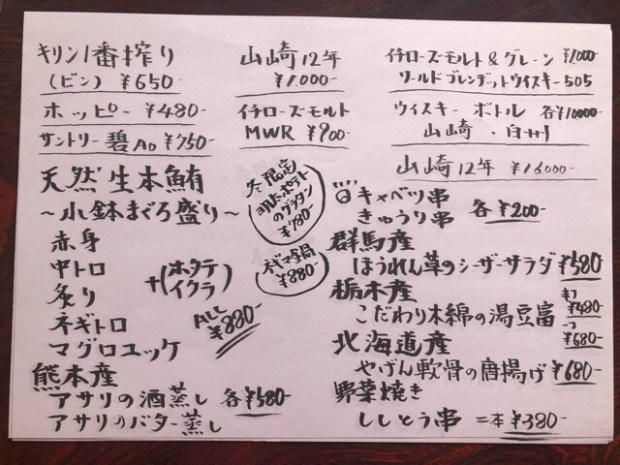 キリン1番搾り
(ビン) ¥650-
ホッピー ¥480-
サントリー 碧Ao ¥750-
山崎12年
¥1000-
イチローズモルト
MWR ¥900-
イチローズモルト&グレーン ¥1000-
ワールドブレンデットウイスキー505
ウィスキー ボトル 各¥10000-
山崎・白州
山崎12年 ¥16000-
天然生本鮪
~小鉢まぐろ盛り~
赤身
中トロ
炙り
ネギトロ
マグロユッケ
+(ホタテ
イクラ)
ALL
¥880-
熊本産
アサリの酒蒸し 各¥580-
アサリのバター蒸し
冬限定
明太ポテト
のグラタン
¥780-
ネギマ鍋
¥880-
キャベツ串
きゅうり串 各¥200-
群馬産
ほうれん草のシーザーサラダ ¥580
栃木産
こだわり木綿の湯豆富 ¥480-
¥680-
北海道産
やげん軟骨の唐揚げ ¥680-
野菜焼き
ししとう串 二本 ¥380-